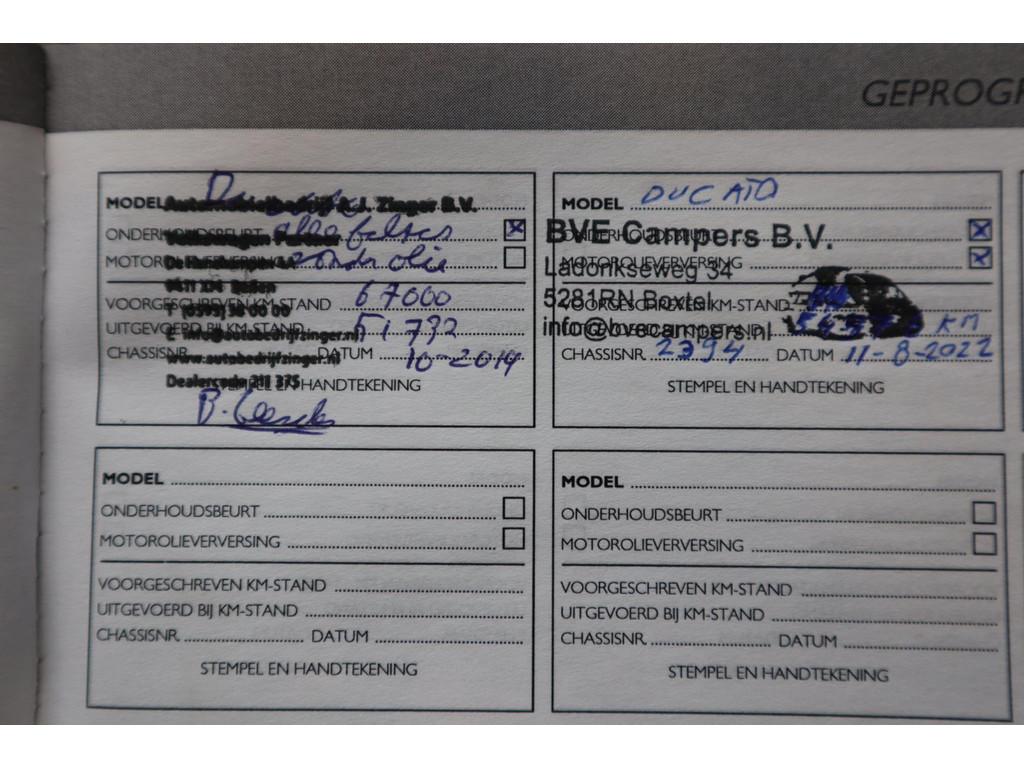 GEPROGR
MODEL
Automobielbedrijf A.J. Zinger B.V.
ONDERHOUDSBEURT
alle filters
Volkswagen Partner
MOTOROLIEVERVERSING
olie
VOORGESCHREVEN KM-STAND 67000
T (0593) 38 00 00
UITGEVOERD BIJ KM-STAND 51732
E info@autobedrijfzinger.nl
CHASSISNR. DATUM 10-2019
www.autobedrijfzinger.nl
Dealercode 211 375
STEMPEL EN HANDTEKENING
MODEL DUCATO
ONDERHOUDSBEURT
BVE Campers B.V.
MOTOROLIEVERVERSING
Ladonkseweg 34
VOORGESCHREVEN KM-STAND
5281RN Boxtel
UITGEVOERD BIJ KM-STAND KM
info@bvecampers.nl
CHASSISNR. 2394 DATUM 11-8-2022
STEMPEL EN HANDTEKENING
MODEL
ONDERHOUDSBEURT
MOTOROLIEVERVERSING
VOORGESCHREVEN KM-STAND
UITGEVOERD BIJ KM-STAND
CHASSISNR. DATUM
STEMPEL EN HANDTEKENING
MODEL
ONDERHOUDSBEURT
MOTOROLIEVERVERSING
VOORGESCHREVEN KM-STAND
UITGEVOERD BIJ KM-STAND
CHASSISNR. DATUM
STEMPEL EN HANDTEKENING